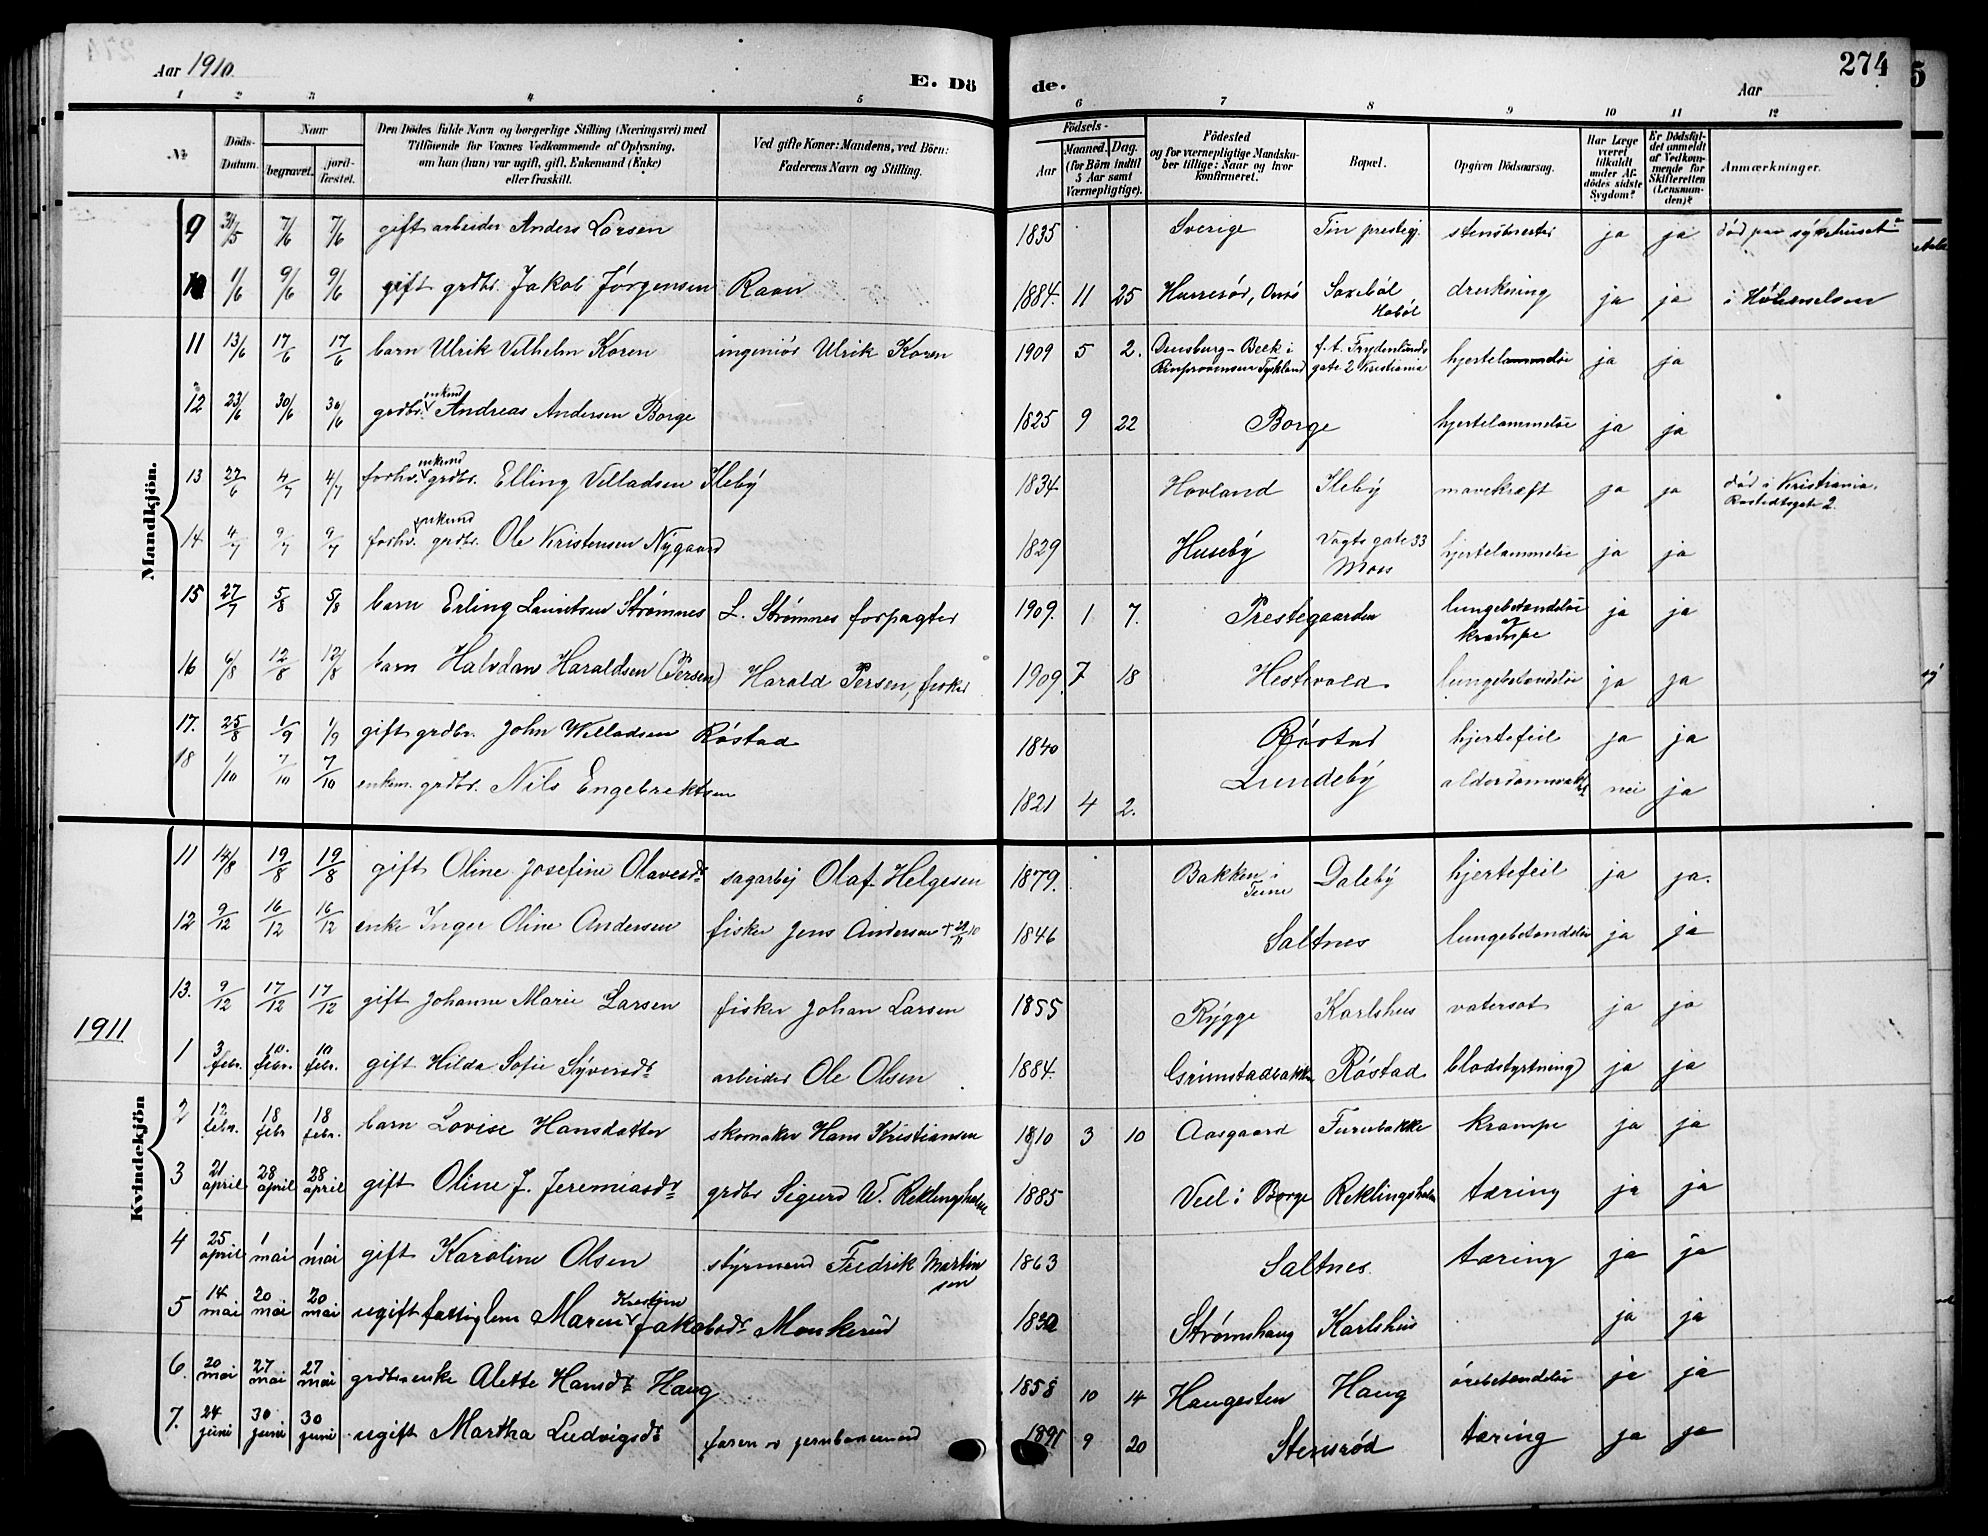 Aar 1910. E. Dö de. Aar 274
1 2 3 4 5 6 7 8 9 10 11 12
№ Döds-Datum. Naar begravet. jord-fæstet. Den Dödes fulde Navn og borgerlige Stilling (Næringsvei) med Tilföiende for Voxnes Vedkommende af Oplysning, om han (hun) var ugift, gift, Enkemand (Enke) eller fraskilt. Ved gifte Koner: Mandens, ved Börn: Faderens Navn og Stilling. Födsels- Aar Maaned. Dag. (for Börn indtil 5 Aar samt Værnepligtige). Födested og for værnepligtige Mandskaber tillige: Naar og hvor konfirmeret. Bopæl. Opgiven Dödsaarsag. Har Læge været tilkaldt under Afdödes sidste Sygdom? Er Dödsfaldet anmeldt af Vedkommende for Skifteretten (Lensmanden)? Anmærkninger.
Mandkjön.
9 31/5 7/6 7/6 gift arbeider Anders Larsen 1835 Sverige Tin prestegj. ja ja död paa sykehuset
10 1/6 9/6 9/6 gift grdbr. Jakob Jörgensen Raav 1884 11 25 Saxeböl Haböl drukning ja ja i
11 13/6 17/6 17/6 barn Ulrik Vilhelm Koren ingeniör Ulrik Koren 1909 5 2. Beek i Tyskland f.t. Frydenlunds gate 2 Kristiania hjertelammelse ja ja
12 23/6 30/6 30/6 grdbr. enkmd Andreas Andersen Borge 1825 9 22 Borge hjertelammelse ja ja
13 27/6 4/7 4/7 forhv. enkmd grdbr. Elling Villadsen Ileby 1834 Hovland Ileby mavekræft ja ja död i Kristiania, Rostedtsgate 2.
14. 4/7 9/7 9/7 forhv. enkmd grdbr. Ole Kristensen Nygaard 1829 Huseby Vogts gate 33 Moss hjertelammelse ja ja
15 27/7 5/8 5/8 barn Erling Lauritsen Strømnes L. Strømnes forpagter 1909. 1 7. Prestegaarden lungebetændelse og krampe ja ja
16 6/8 12/8 12/8 barn Halvdan Haraldsen (Persen) Harald Persen, fisker 1909. 7 18 Hestevold lungebetændelse ja ja
17. 25/8 1/9 1/9 gift grdbr. John Willadsen Röstad 1840 Röstad hjertefeil ja ja
18 1/10 7/10 7/10 enkem. grdbr. Nils Engebrektsen 1821 4 2. Lundeby alderdomssvakhet nei ja
Kvindekjön
11 14/8 19/8 19/8 gift Oline Josefine Olavesdr sagarbej Olaf Helgesen 1879. Bakken i Daleby hjertefeil ja ja.
12 9/12 16/12 16/12 enke Inger Oline Andersen fisker Jens Andersen 1846 Saltnes lungebetændelse ja ja
13. 9/12 17/12 17/12 gift Johanne Marie Larsen fisker Johan Larsen 1855 Rygge Karlshus vatersot ja ja
1911
1 3 febr. 10. febr. 10 febr. gift Hilda Sofie Syversdr arbeider Ole Olsen 1884. Grimstadbakken Röstad blodstyrtning ja ja
2 12 febr. 18 febr 18 febr. barn Lovise Hansdatter skomaker Hans Kristiansen 1910 3 10 Aasgaard Furubakke krampe ja ja
3 21 april 28 april 28 april gift Oline J. Jeremiasdr grdbr Sigurd W. Reklingsholm 1885 Veel i Borge Reklingsholm tæring ja ja
4 25 april 1 mai 1 mai gift Karoline Olsen styrmand Fredrik Martinsen 1863 Saltnes. tæring ja ja
5 14 mai 20 mai 20 mai ugift fattiglem Maren Kristine Jakobsdr Monkerud 1830 Strömshaug Karlshus ja ja
6. 20 mai 27 mai 27 mai grdbr.enke Alette Hansdr Haug 1858 10 14 Haugesten Haug örebetændelse ja ja
7. 24 juni 30 juni 30 juni ugift Martha Ludvigsdr faren er jernbanemand 1891 9 20 Stensröd tæring ja ja